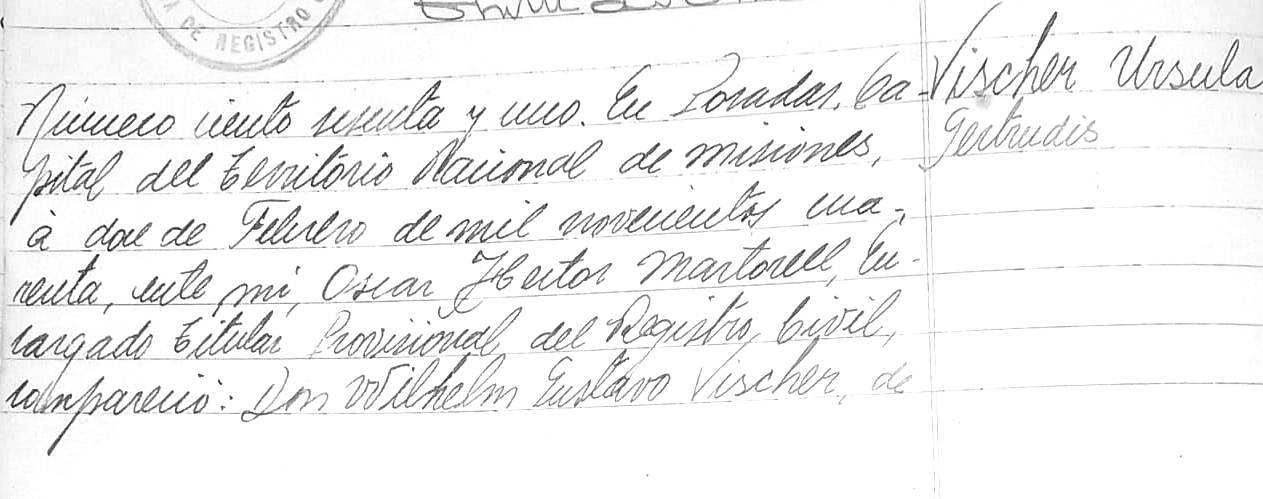 DE REGISTRO
Número ciento sesenta y uno. En Posadas, Ca-
pital del Território Nacional de misiones,
à doce de Febrero de mil novecientos cua-
renta, ante mi, Oscar Hector Martorell, En-
cargado Titular Provisional del Registro Civil,
compareció: Don Wilhelm Gustavo Vischer, de
Vischer Ursula
Gertrudis